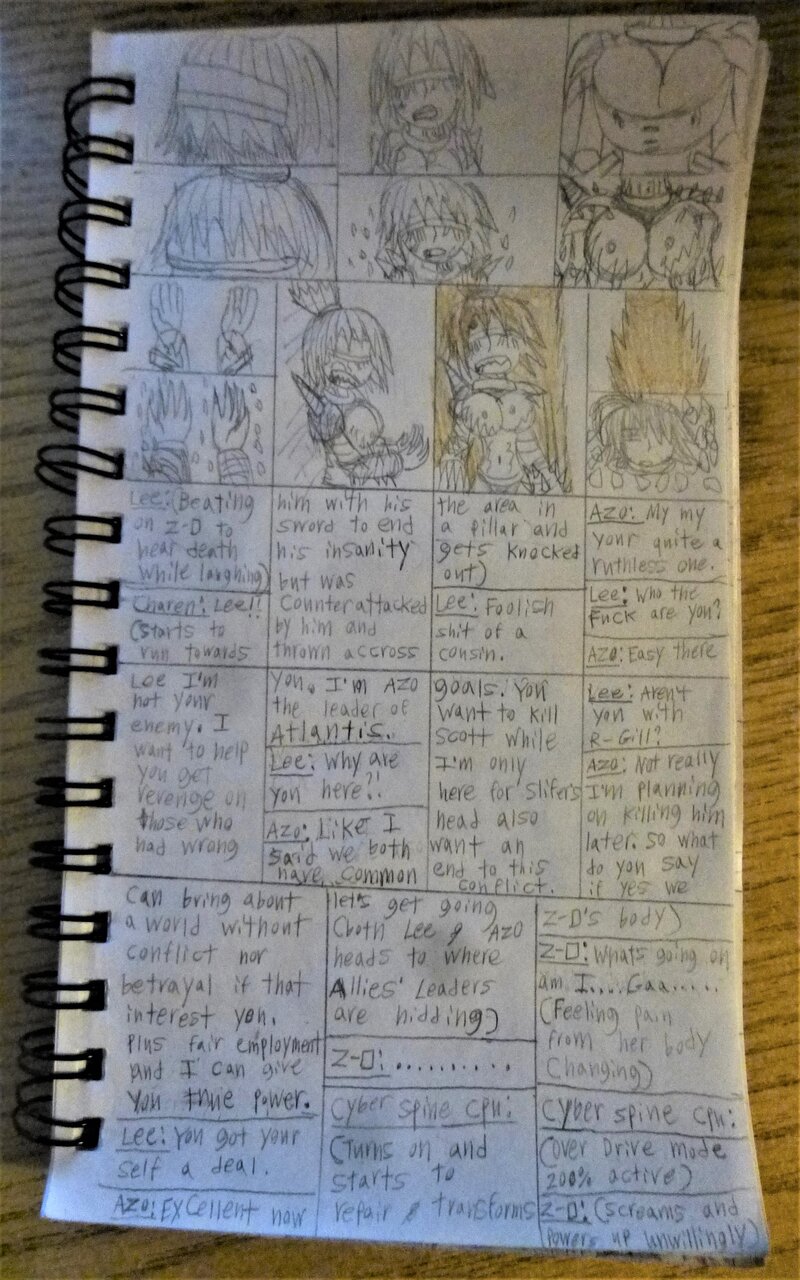 Lee: (Beating
on Z-D to
near death
while laughing)
Charen: Lee!!
(starts to
run towards
him with his
sword to end
his insanity
but was
counterattacked
by him and
thrown accross
the area in
a pillar and
gets knocked
out)
Lee: Foolish
shit of a
cousin.
Azo: My my
your quite a
ruthless one.
Lee: Who the
Fuck are you?
Azo: Easy there
Lee I'm
not your
enemy. I
want to help
you get
revenge on
those who
had wrong
you. I'm Azo
the leader of
Atlantis.
Lee: Why are
you here?!
Azo: Like I
said we both
have common
goals. You
want to kill
Scott while
I'm only
here for Slifers
head also
want an
end to this
conflict.
Lee: Aren't
you with
R-Gill?
Azo: Not really
I'm planning
on killing him
later. So what
do you say
if yes we
can bring about
a world without
conflict nor
betrayal if that
interest you.
Plus fair employment
and I can give
you true power.
Lee: You got your
self a deal.
Azo: Excellent now
let's get going
(both Lee & Azo
heads to where
Allies' Leaders
are hidding)
Z-D: ..........
Cyber spine cpu:
(Turns on and
starts to
repair & transforms
Z-D's body)
Z-D: Whats going on
am I.... Gaa.....
(Feeling pain
from her body
Changing)
Cyber spine cpu:
(Over Drive mode
200% active)
Z-D: (screams and
powers up unwillingly)